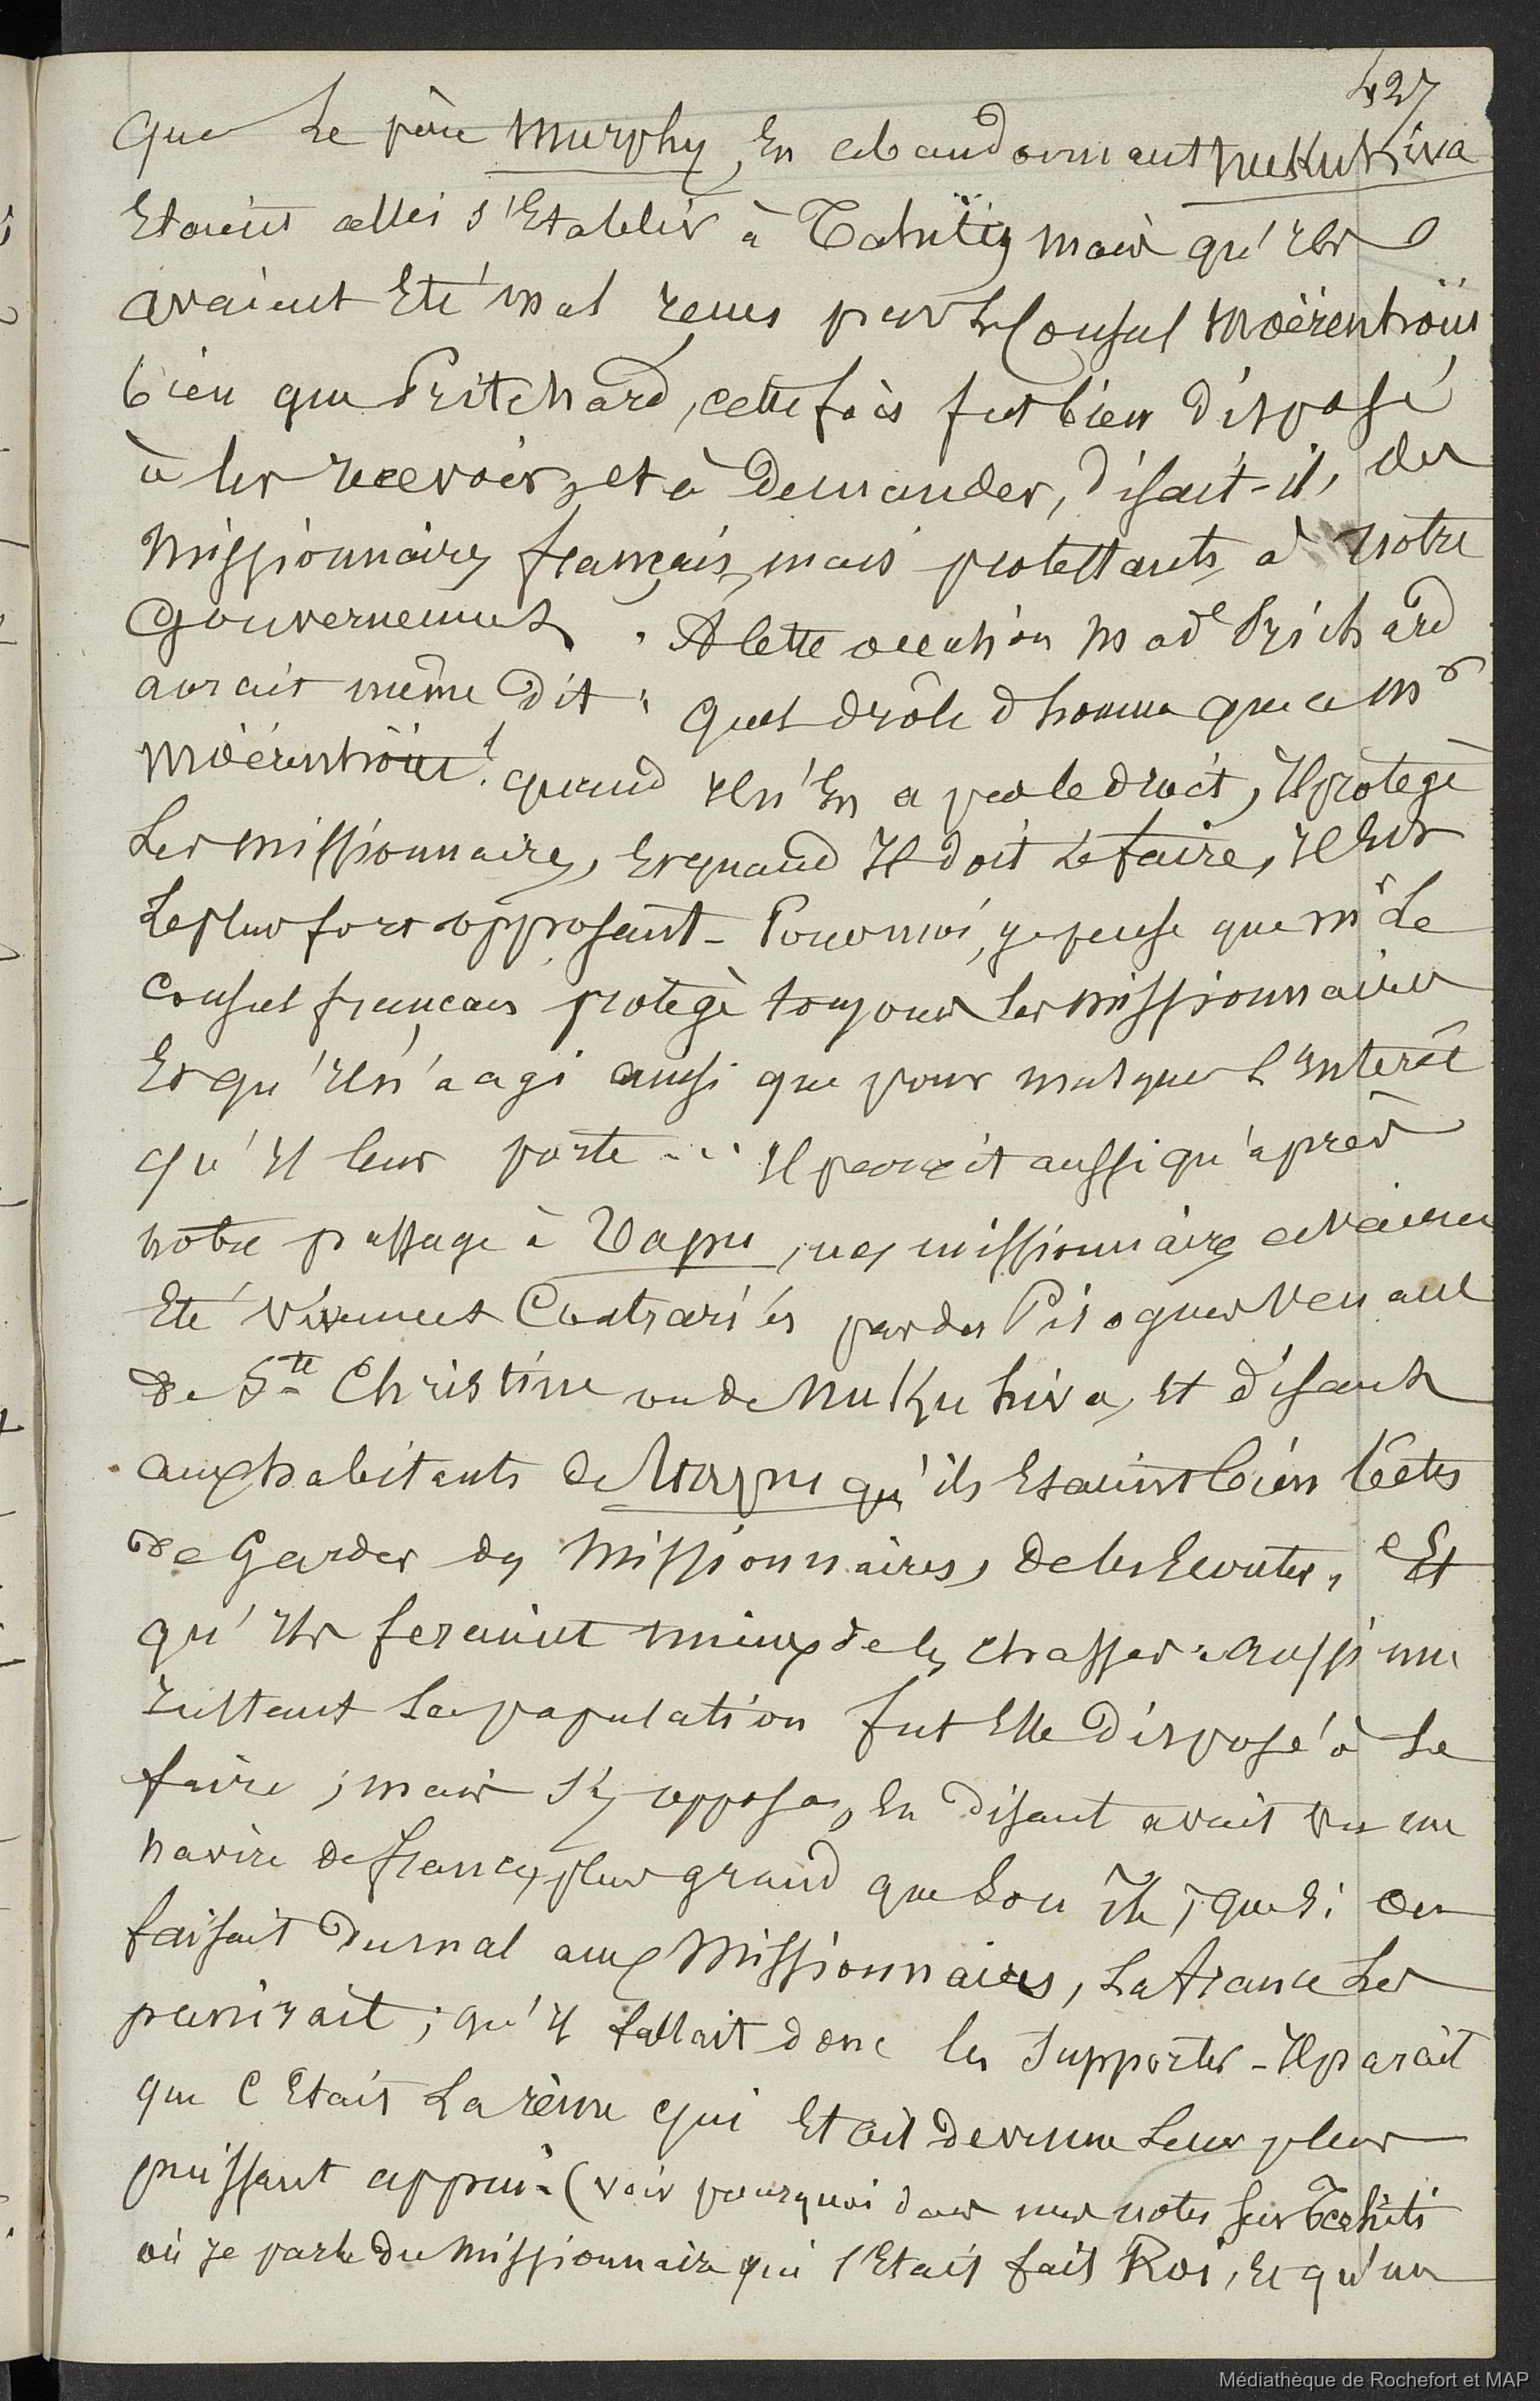 427
que Le père Murphy, En abandonnant Nukuhiva
Etaient allés s'Etablir à Tahïti, mais qu'ils
avaient Eté mal reçus par Le Consul Moërenhoüt
bien que Pritchard, cette fois fut bien disposé
à les recevoir, et à Demander, disait-il, des
Missionnaires français, mais protestants, à Notre
Gouvernement. A Cette occasion Mad^e Prichard
aurait même Dit : quel drôle d'homme que ce M^r
Moërenhoüt! quand il n'En a pas le droit, Il protège
Les missionnaires, Et quand Il doit Le faire, Il Est
Le plus fort opposant - Pour moi, je pense que M^r Le
Consul français protègè toujours Les Missionnaires
Et qu'il n'a agi ainsi que pour masquer L'Interêt
qu'Il leur porte ... Il parait aussi qu'après
notre passage à Uapu, nos missionnaires avaient
Eté Vivement Contrariés par des Pirogues Venant
De S^te Christine ou de Nukuhiva, Et disant
aux habitants de Uapu qu'ils Etaient bien bêtes
De Garder des Missionnaires, De les Ecouter, Et
qu'ils feraient mieux de les chasser. Aussi un
instant La population fut Elle Disposé à Le
faire ; mais s'y opposa, En Disant avait vu un
navire de france, plus grand que Son île ; que Si on
faisait Du mal aux Missionnaires, La france Les
punirait ; qu'Il fallait donc les Supporter - Il parait
que C'Etait La reine qui Etait devenue Leur plus
puissant appui - (voir pourquoi dans mes notes Sur Tahiti
où je parle Du Missionnaire qui s'Etait fait Roi, Et qu'un
Médiathèque de Rochefort et MAP